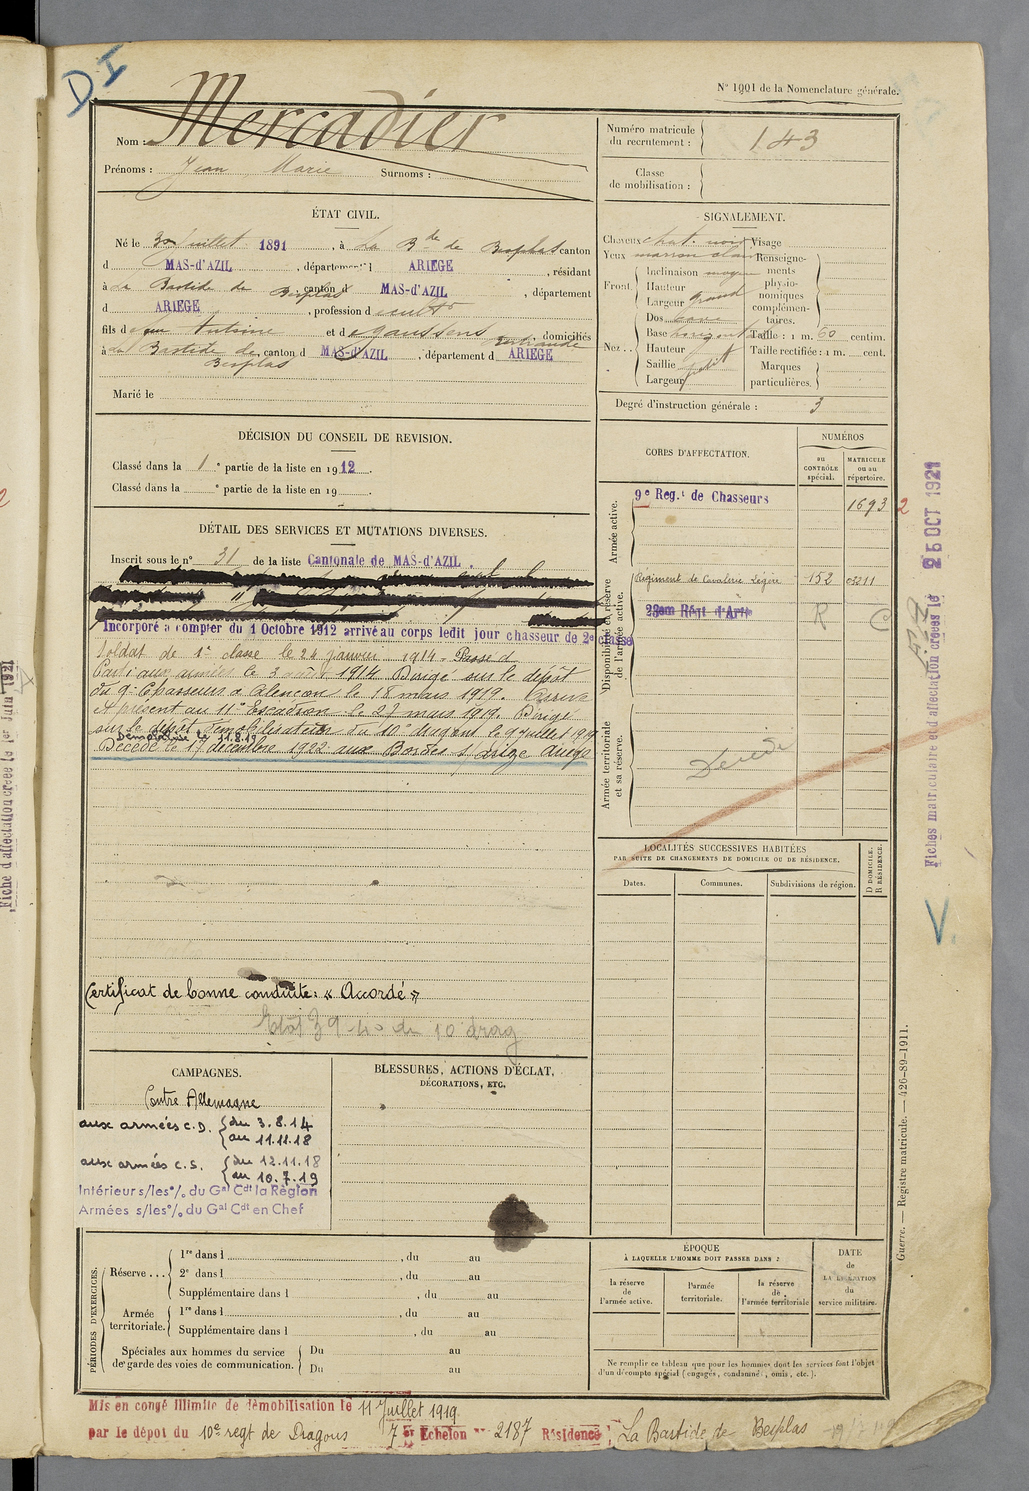 D I
N° 1001 de la Nomenclature générale.
Nom : Mercadier
Prénoms : Jean Marie Surnoms :
Numéro matricule du recrutement : 143
Classe de mobilisation :
ÉTAT CIVIL.
Né le Juillet 1891, à La Bde de Besplas canton
d MAS-d'AZIL, département d ARIEGE, résidant
à La Bastide de Besplas canton d MAS-d'AZIL, département
d ARIEGE, profession d
fils d Jean Antoine et d egaussens Bertrande, domiciliés
à La Bastide de Besplas, canton d MAS-d'AZIL, département d ARIEGE
Marié le
SIGNALEMENT.
Cheveux chat. noir
Yeux marron clair
Front Inclinaison moyen
Hauteur
Largeur grand
Nez.. Dos
Base horizont
Hauteur
Saillie petit
Largeur
Visage
Renseignements physionomiques complémentaires.
Taille : 1 m. 60 centim.
Taille rectifiée : 1 m. cent.
Marques particulières.
Degré d'instruction générale : 3
DÉCISION DU CONSEIL DE REVISION.
Classé dans la 1e partie de la liste en 1912.
Classé dans la e partie de la liste en 19
DÉTAIL DES SERVICES ET MUTATIONS DIVERSES.
Inscrit sous le n° 31 de la liste Cantonale de MAS-d'AZIL.
Incorporé à compter du 1 Octobre 1912 arrivé au corps ledit jour chasseur de 2e classe
Soldat de 1e classe le 24 janvier 1914. Passé d
Parti aux armées le 3 août 1914. Dirigé sur le dépôt
du 9e Chasseurs à Alençon le 18 mars 1919. Arrivé
et présent au 11e Escadron le 27 mars 1919. Dirigé
sur le dépôt démobilisateur du 10e dragons le 9 juillet 1919
Démobilisé le
Décédé le 17 décembre 1922 aux Bordes s/ Arize Ariège
Certificat de bonne conduite : « Accordé »
du 10 drag
CORPS D'AFFECTATION.
NUMÉROS
au CONTRÔLE spécial.
MATRICULE ou au répertoire.
Armée active.
9e Reg.t de Chasseurs 1693 2
Disponibilité et réserve de l'armée active.
Régiment de Cavalerie Légère 152 03211
23em Régt d'Artie R C
Armée territoriale et sa réserve.
Décédé
LOCALITÉS SUCCESSIVES HABITÉES
PAR SUITE DE CHANGEMENTS DE DOMICILE OU DE RÉSIDENCE.
Dates. Communes. Subdivisions de région. D DOMICILE. R RÉSIDENCE.
CAMPAGNES.
Contre Allemagne
aux armées C.D. { du 3.8.14
au 11.11.18
aux armées C.S. { du 12.11.18
au 10.7.19
Intérieur s/les °/o du Gal Cdt la Région
Armées s/les °/o du Gal Cdt en Chef
BLESSURES, ACTIONS D'ÉCLAT,
DÉCORATIONS, ETC.
PÉRIODES D'EXERCICES.
Réserve ... 1re dans l , du au
2e dans l , du au
Supplémentaire dans l , du au
Armée territoriale. 1re dans l , du au
Supplémentaire dans l , du au
Spéciales aux hommes du service de garde des voies de communication. Du au
Du au
ÉPOQUE
À LAQUELLE L'HOMME DOIT PASSER DANS :
la réserve de l'armée active.
l'armée territoriale.
la réserve de l'armée territoriale
DATE
de
LA LIBÉRATION
du
service militaire.
Ne remplir ce tableau que pour les hommes dont les services font l'objet
d'un décompte spécial (engagés, condamnés, omis, etc.).
Mis en congé illimité de démobilisation le 11 Juillet 1919
par le dépôt du 10e regt de Dragons 7e Echelon N° 2187 Résidence La Bastide de Besplas
Fiches matriculaire et d'affectation créées le 25 OCT 1921
V.
Guerre. — Registre matricule. — 426-89-1911.
Fiche d'affectation créée le 1er Juin 1921